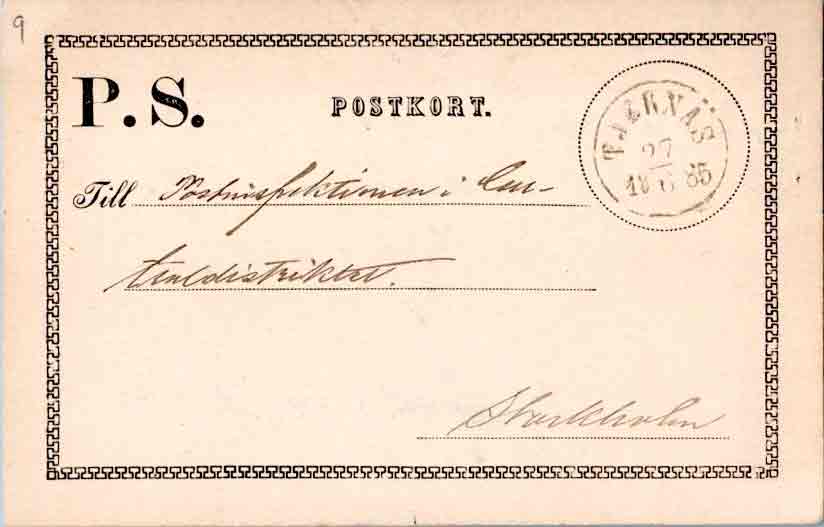 9
P. S.
POSTKORT.
TJÄRNÄS
27
18 6 85
Till Postinspektionen i Cen-
traldistriktet.
Stockholm